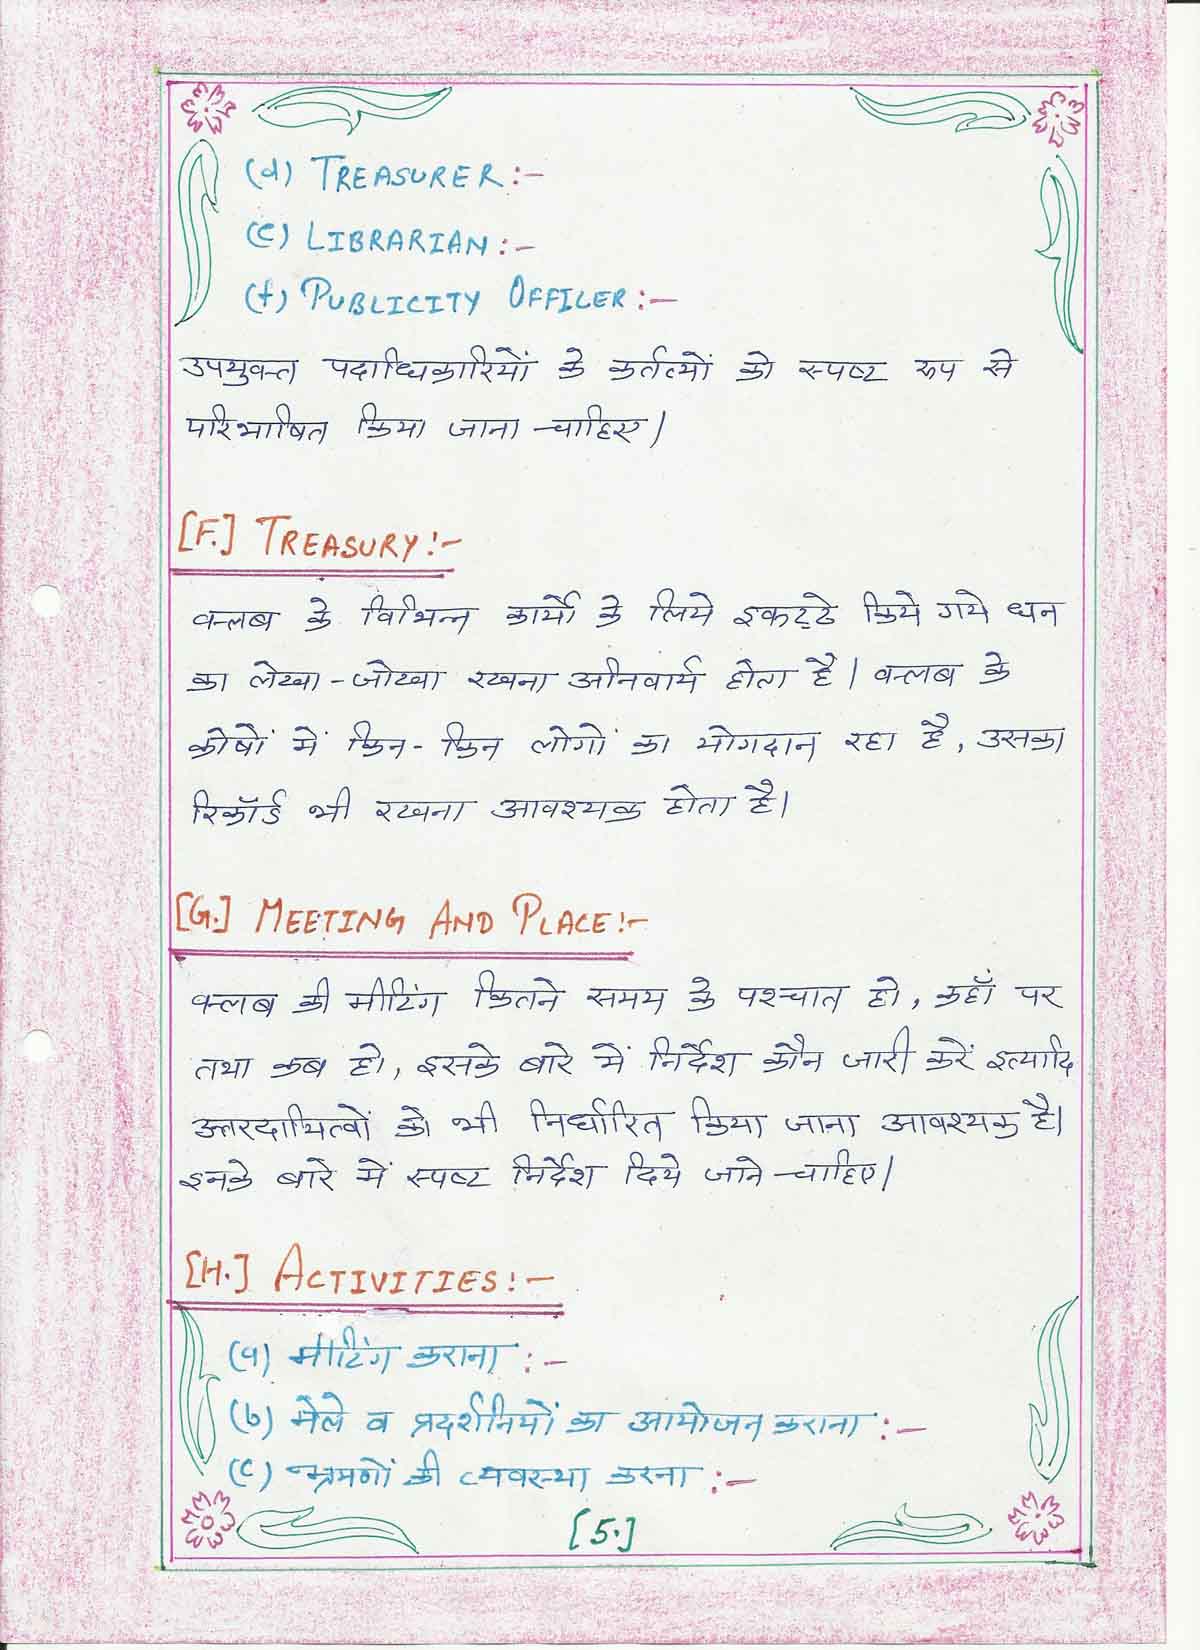 (d) TREASURER :-
(e) LIBRARIAN :-
(f) PUBLICITY OFFICER :-
उपयुक्त पदाधिकारियों के कर्तत्यों को स्पष्ट रूप से
परिभाषित किया जाना चाहिए।
[F.] TREASURY :-
क्लब के विभिन्न कार्यों के लिये इकट्ठे किये गये धन
का लेखा-जोखा रखना अनिवार्य होता है। क्लब के
कोषों में किन-किन लोगों का योगदान रहा है, उसका
रिकॉर्ड भी रखना आवश्यक होता है।
[G.] MEETING AND PLACE :-
क्लब की मीटिंग कितने समय के पश्चात हो, कहाँ पर
तथा कब हो, इसके बारे में निर्देश कौन जारी करें इत्यादि
उत्तरदायित्वों को भी निर्धारित किया जाना आवश्यक है।
इनके बारे में स्पष्ट निर्देश दिये जाने चाहिए।
[H.] ACTIVITIES :-
(a) मीटिंग कराना :-
(b) मेले व प्रदर्शनियों का आयोजन कराना :-
(c) भ्रमणों की व्यवस्था करना :-
[5.]